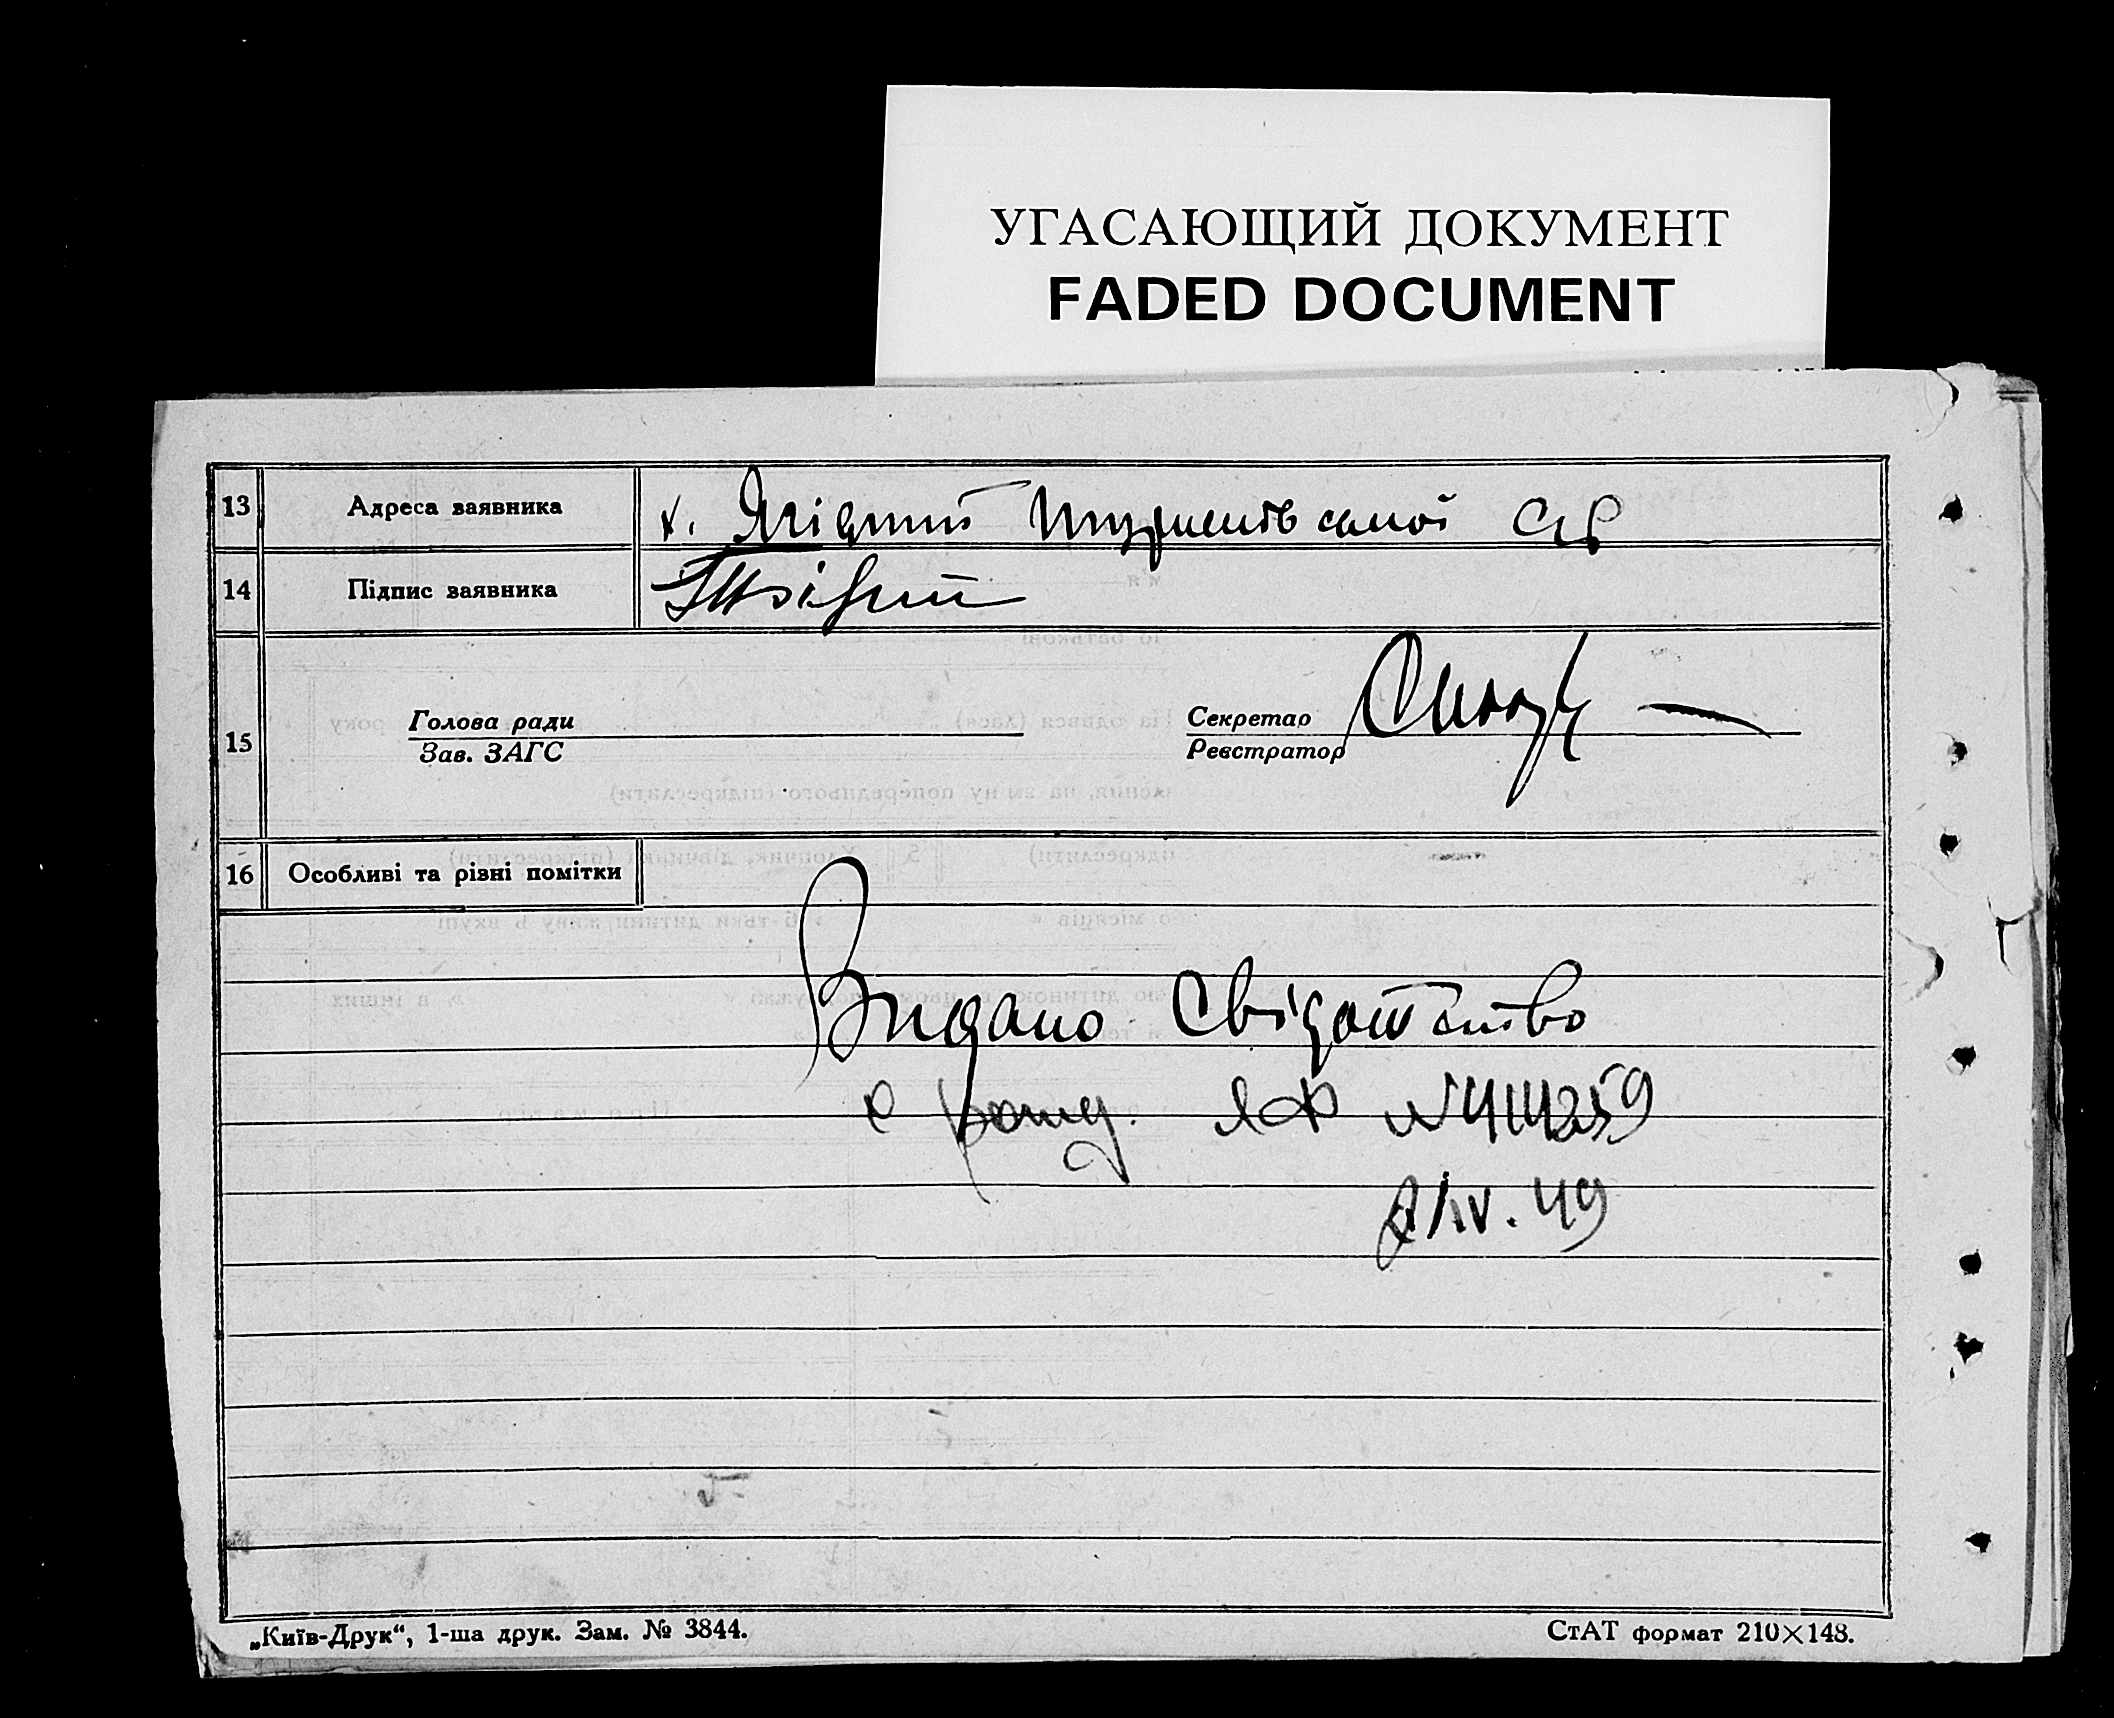 УГАСАЮЩИЙ ДОКУМЕНТ
FADED DOCUMENT
13 Адреса заявника х. Ягідний СР
14 Підпис заявника
15 Голова ради
Зав. ЗАГС
Секретар
Реєстратор
16 Особливі та різні помітки
Видано свідотство
о рожд. ЯФ № 414259
IV. 49
„Київ-Друк“, 1-ша друк. Зам. № 3844.
СтАТ формат 210×148.